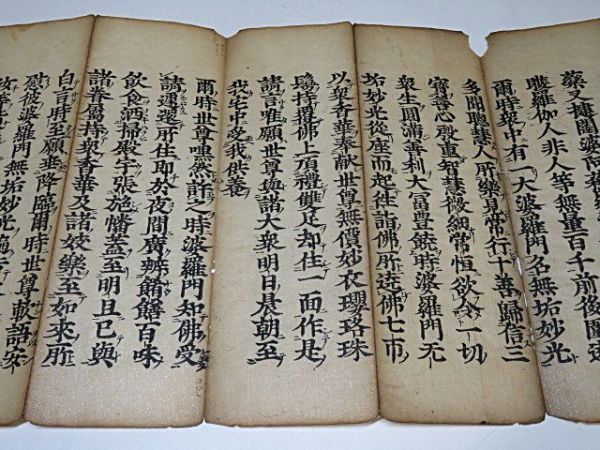 藥叉揵闥婆阿脩羅迦
睺羅伽人非人等無量百千前後圍遶
爾時衆中有一大婆羅門名無垢妙光
多聞聰慧人所樂見常行十善歸信三
寶善心殷重智慧微細常恒欲令一切
衆生圓滿善利大冨豊饒時婆羅門无
垢妙光從座而起往詣佛所遶佛七帀
以衆香華奉献世尊無價妙衣瓔珞珠
鬘持覆佛上頂禮雙足却住一面作是
請言唯願世尊與諸大衆明日晨朝至
我宅中受我供養
爾時世尊嘿然許之時婆羅門知佛受
請遽還所住即於夜間廣辦餚饍百味
飲食洒掃殿宇張施幡蓋至明旦已與
諸眷属持衆香華及諸妓樂至如來所
白言時至願垂降臨爾時世尊軟語安
慰彼婆羅門無垢妙光遍